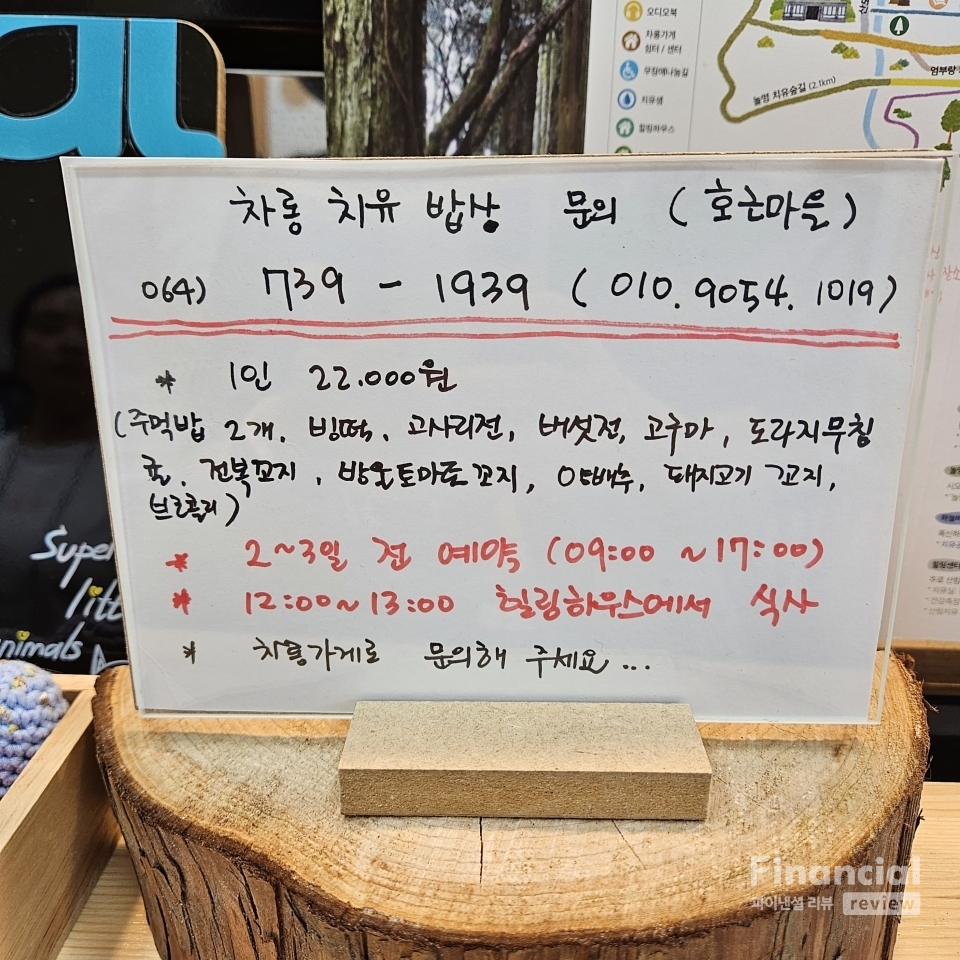 오디오북
차롱가게
쉼터 / 센터
무장애나눔길
치유샘
힐링하우스
놀멍 치유숲길 (2.1km)
엄부랑
차롱 치유 밥상 문의 (호근마을)
064) 739 - 1939 (010.9054.1019)
* 1인 22.000원
(주먹밥 2개. 빙떡. 고사리전, 버섯전, 고구마, 도라지무침
귤. 전복꼬지, 방울토마토꼬지, 양배추, 돼지고기 꼬지,
브로콜리)
* 2~3일 전 예약 (09:00 ~17:00)
* 12:00~13:00 힐링하우스에서 식사
* 차롱가게로 문의해 주세요...
Super
litt
nimals
Financial
파이낸셜 리뷰 review